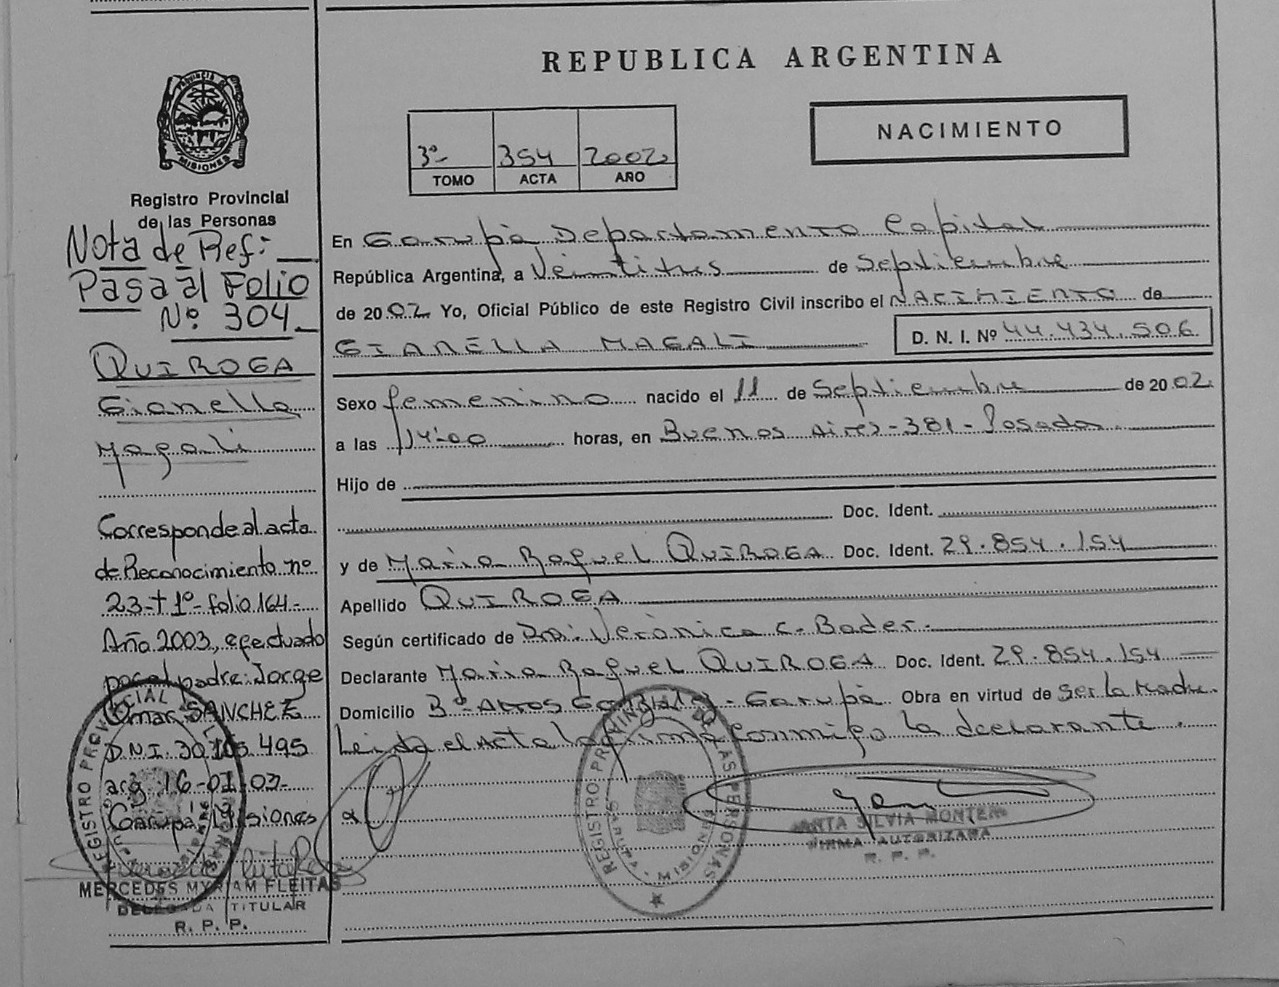 REPUBLICA ARGENTINA
NACIMIENTO
3º- 354 2002
TOMO ACTA AÑO
PROVINCIA DE MISIONES
Registro Provincial
de las Personas
Nota de Ref:
Pasa al Folio
Nº 304
QUIROGA
Gianella
Magali
Corresponde al acta
de Reconocimiento nº
23-t 1º- folio 164-
Año 2003, efectuado
por el padre: Jorge
Omar SANCHEZ
D.N.I. 495
16-01-03-
Garupá Misiones
REGISTRO PROVINCIAL
MERCEDES MYRIAM FLEITAS
DELEGADA TITULAR
R. P. P.
En Garupá Departamento Capital
República Argentina, a Veintitrés de Septiembre
de 2002 Yo, Oficial Público de este Registro Civil inscribo el NACIMIENTO de
GIANELLA MAGALI D. N. I. Nº 44.434.506
Sexo femenino nacido el 11 de Septiembre de 2002
a las 14:00 horas, en Buenos Aires-381-Posadas
Hijo de
Doc. Ident.
y de Maria Raquel QUIROGA Doc. Ident. 29.854.154
Apellido QUIROGA
Según certificado de Dra: Verónica C. Bader.
Declarante Maria Raquel QUIROGA Doc. Ident. 29.854.154
Domicilio Bº Altos - Garupá Obra en virtud de ser la Madre.
Leida el Acta la firma conmigo la declarante.
REGISTRO PROVINCIAL DE LAS PERSONAS
GARUPA - MISIONES
SILVIA
FIRMA AUTORIZADA
R. P. P.